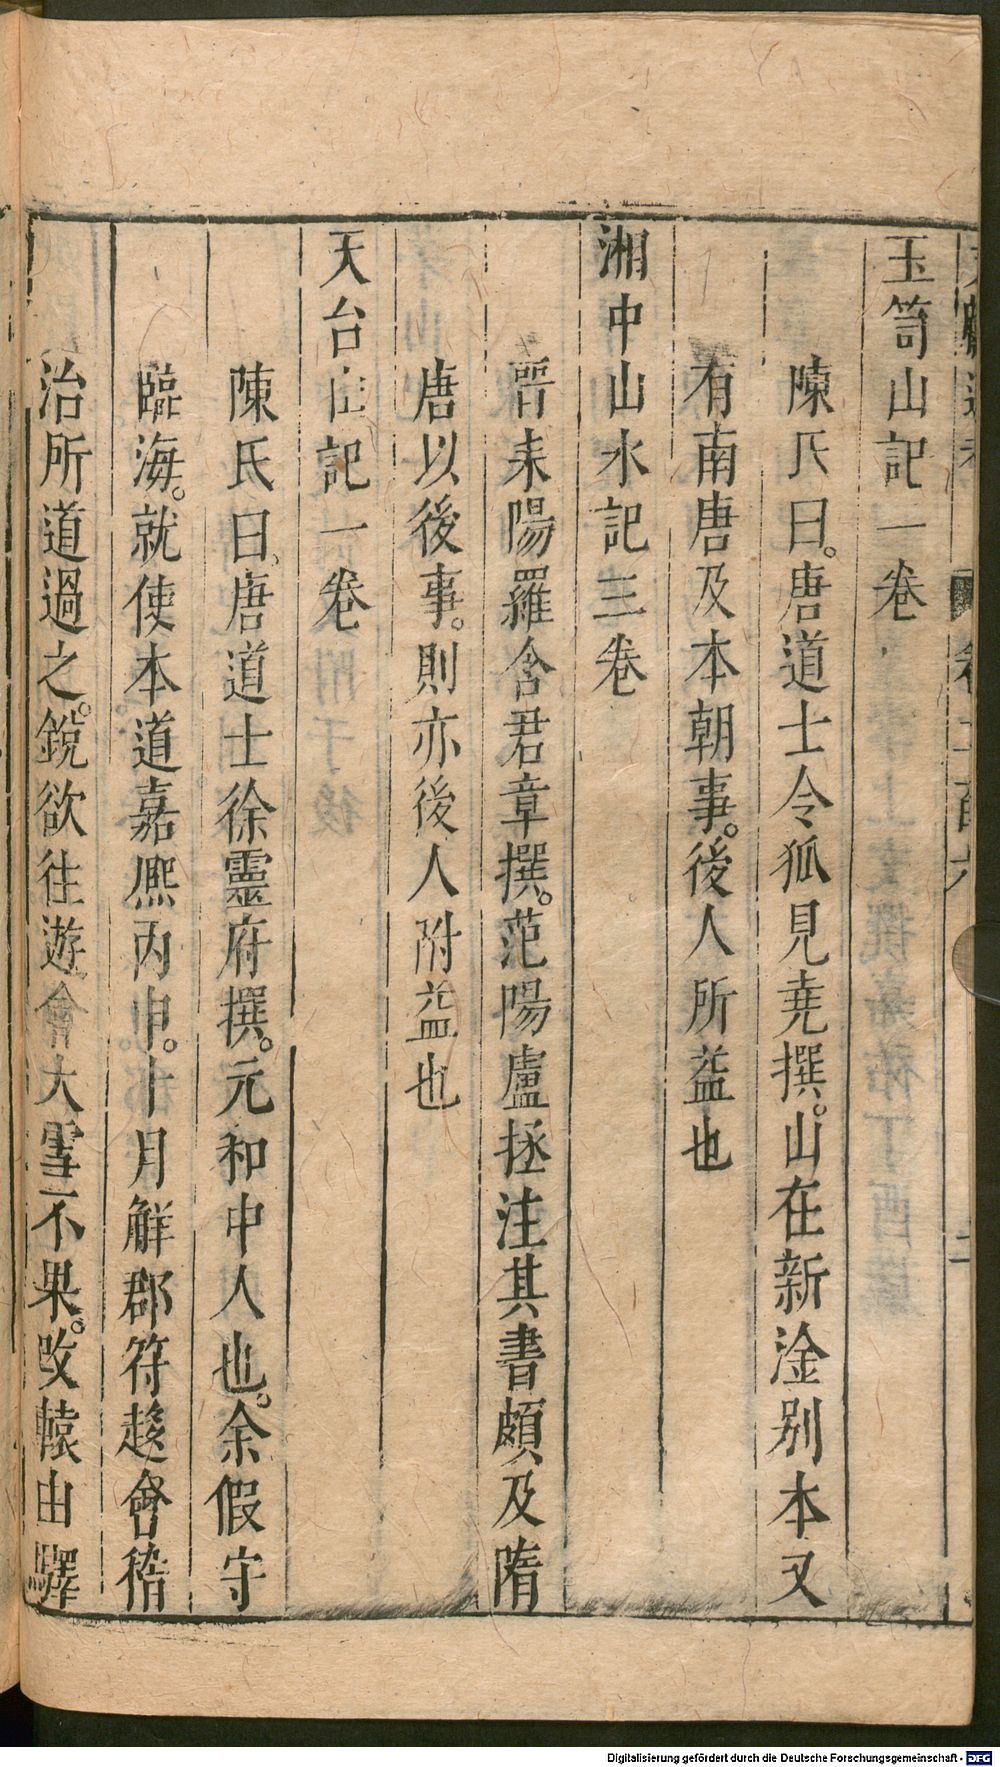 玉笥山記一卷
陳氏曰。唐道士令狐見堯撰。山在新淦别本又
有南唐及本朝事。後人所益也
湘中山水記三卷
晉耒陽羅含君章撰。范陽盧拯注其書頗及隋
唐以後事。則亦後人附益也
天台山記一卷
陳氏曰唐道士徐靈府撰。元和中人也。余假守
臨海。就使本道嘉熈丙申。十月解郡符趍會稽
治所道過之。銳欲往遊會大雪不果。改轅由驛
Digitalisierung gefördert durch die Deutsche Forschungsgemeinschaft - DFG